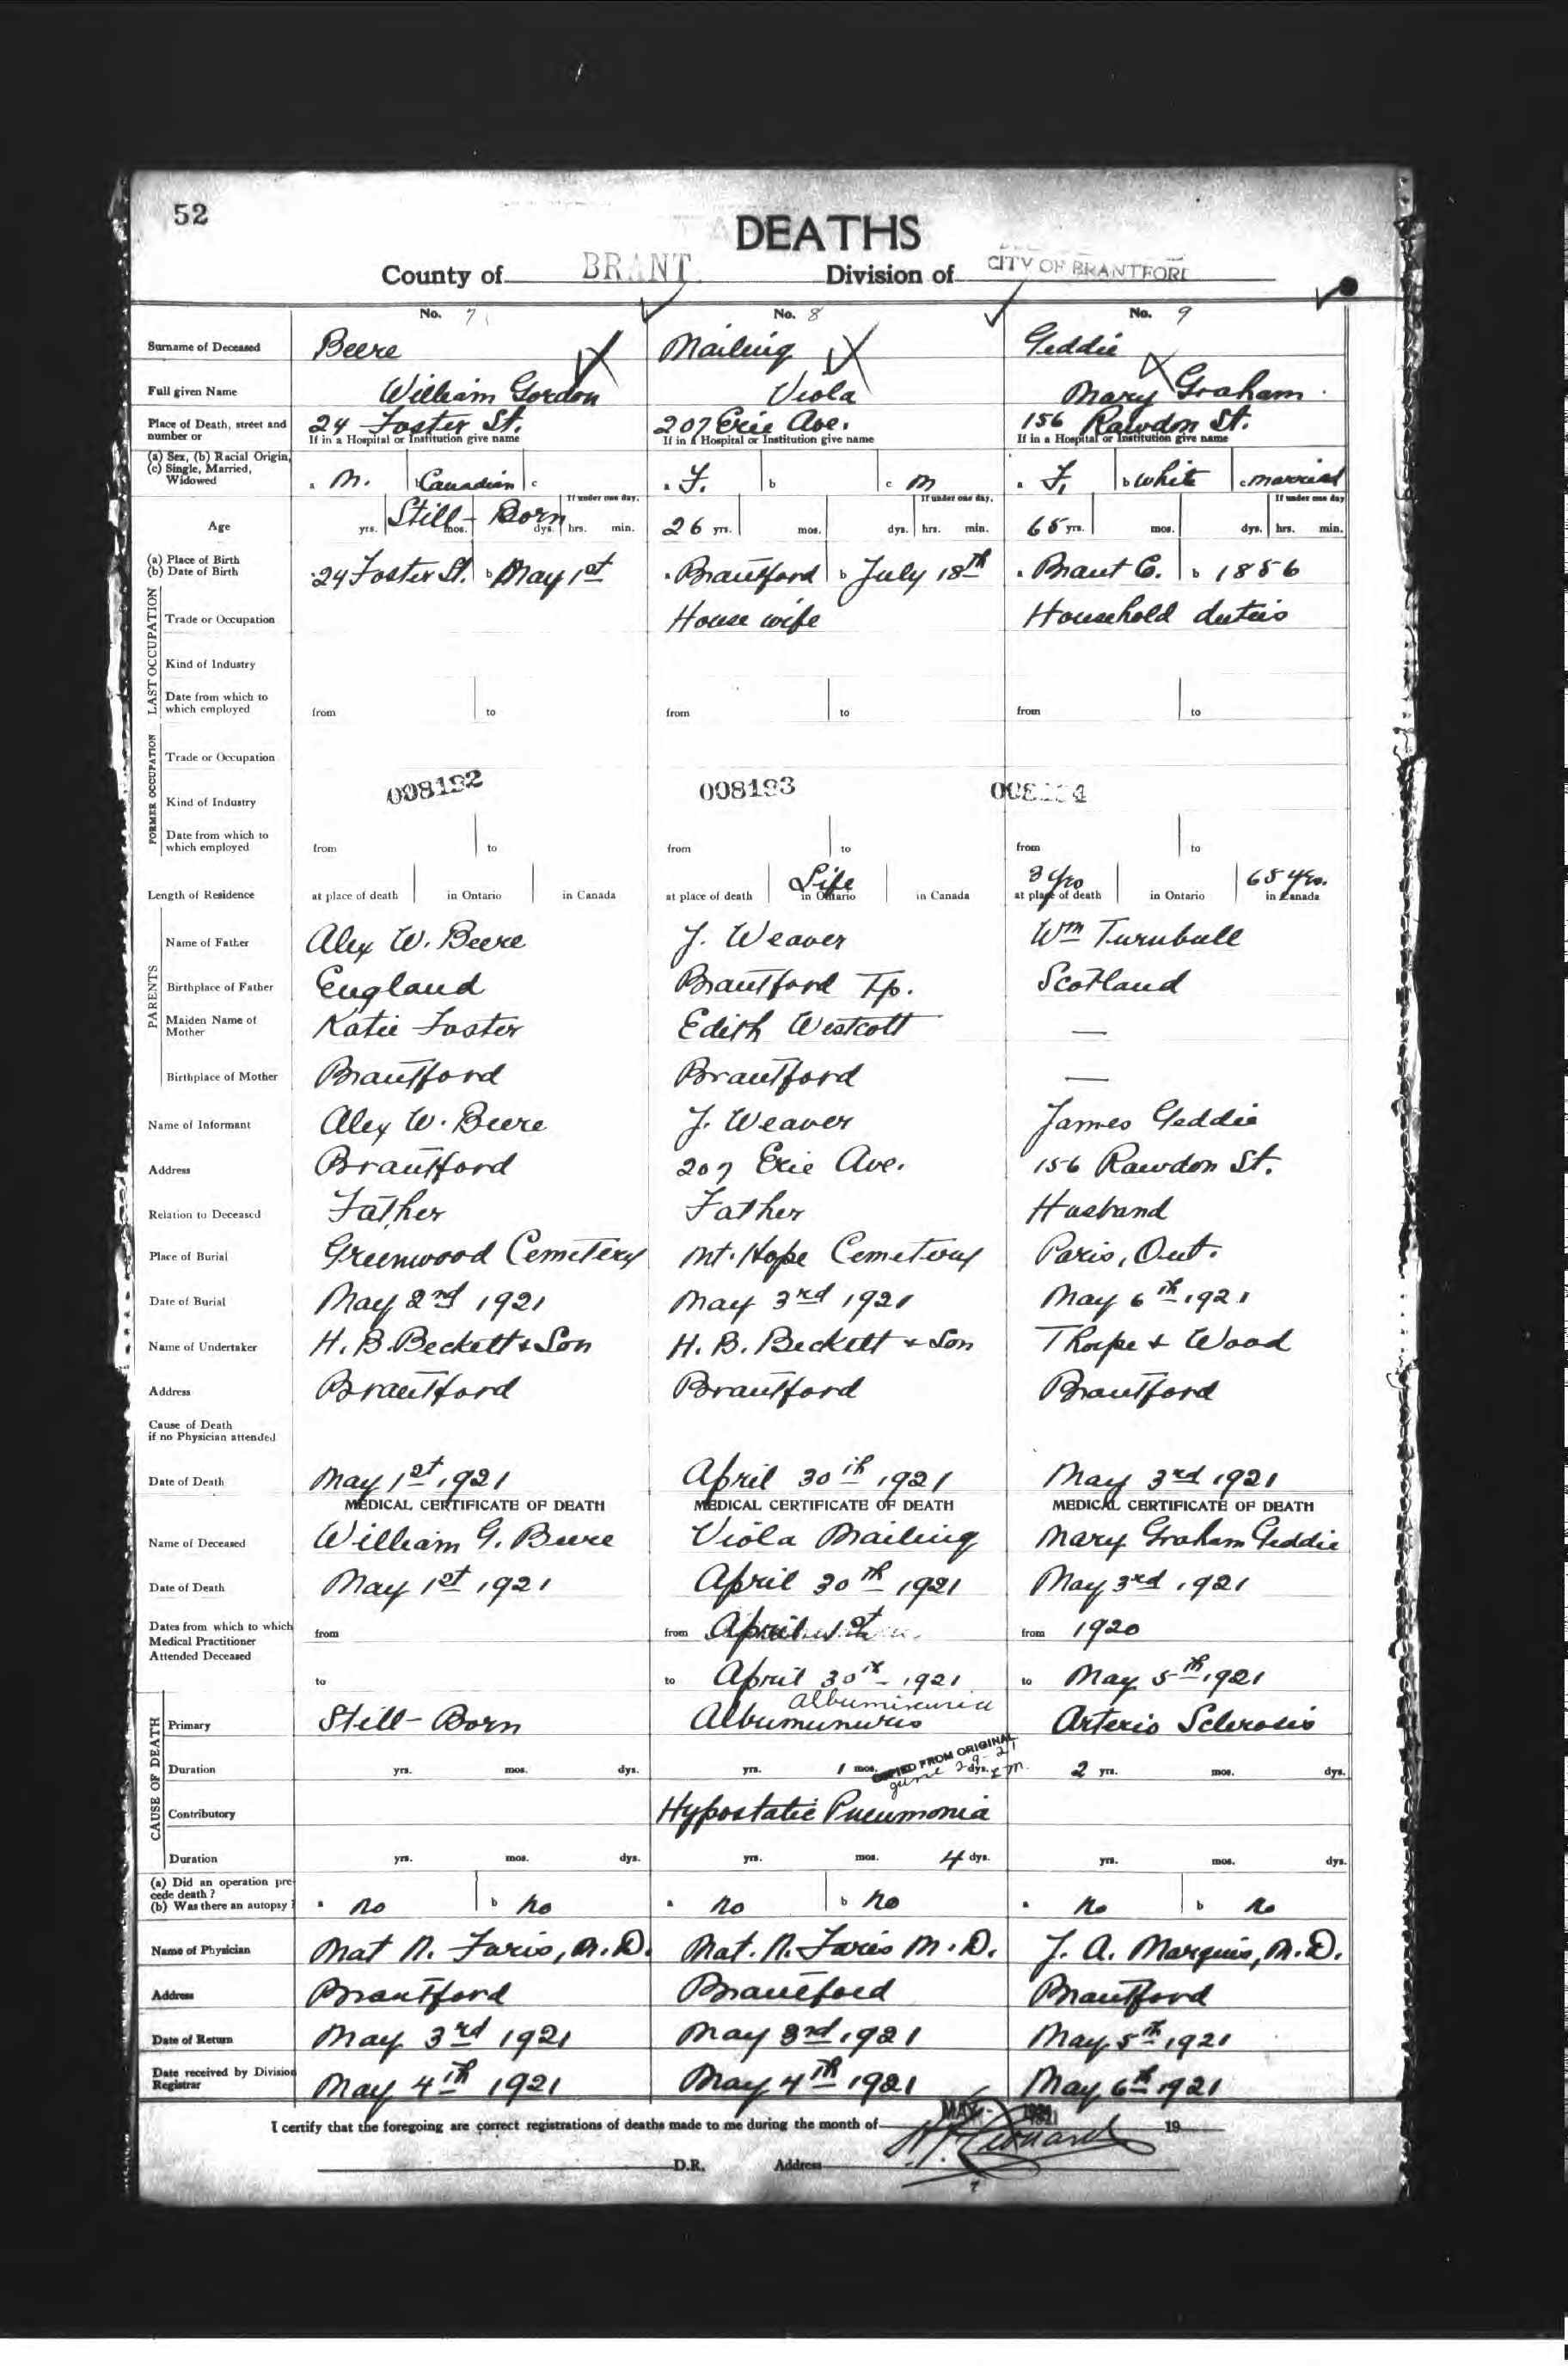 52
DEATHS
County of BRANT Division of CITY OF BRANTFORD
No. 7 No. 8 No. 9
Surname of Deceased Beere Mailing Geddie
Full given Name William Gordon Viola Mary Graham
Place of Death, street and number or 24 Foster St. 207 Erie Ave. 156 Rawdon St.
If in a Hospital or Institution give name If in a Hospital or Institution give name If in a Hospital or Institution give name
(a) Sex, (b) Racial Origin, (c) Single, Married, Widowed a M. b Canadian c a F. b c M a F. b White c married
If under one day. If under one day. If under one day
Age yrs. Still-Born mos. dys. hrs. min. 26 yrs. mos. dys. hrs. min. 65 yrs. mos. dys. hrs. min.
(a) Place of Birth (b) Date of Birth 24 Foster St. b May 1st a Brantford b July 18th a Brant C. b 1856
LAST OCCUPATION
Trade or Occupation House wife Household duties
Kind of Industry
Date from which to which employed from to from to from to
FORMER OCCUPATION
Trade or Occupation
008192 008193
Kind of Industry
Date from which to which employed from to from to from to
Life 3 yrs 65 yrs.
Length of Residence at place of death in Ontario in Canada at place of death in Ontario in Canada at place of death in Ontario in Canada
PARENTS
Name of Father Alex W. Beere J. Weaver Wm Turnbull
Birthplace of Father England Brantford Tp. Scotland
Maiden Name of Mother Katie Foster Edith Westcott —
Birthplace of Mother Brantford Brantford —
Name of Informant Alex W. Beere J. Weaver James Geddie
Address Brantford 207 Erie Ave. 156 Rawdon St.
Relation to Deceased Father Father Husband
Place of Burial Greenwood Cemetery Mt. Hope Cemetery Paris, Ont.
Date of Burial May 2nd 1921 May 3rd 1921 May 6th 1921
Name of Undertaker H. B. Beckett & Son H. B. Beckett & Son Thorpe & Wood
Address Brantford Brantford Brantford
Cause of Death if no Physician attended
Date of Death May 1st 1921 April 30th 1921 May 3rd 1921
MEDICAL CERTIFICATE OF DEATH MEDICAL CERTIFICATE OF DEATH MEDICAL CERTIFICATE OF DEATH
Name of Deceased William G. Beere Viola Mailing Mary Graham Geddie
Date of Death May 1st 1921 April 30th 1921 May 3rd 1921
Dates from which to which Medical Practitioner Attended Deceased from from April 1st from 1920
to to April 30th 1921 to May 5th 1921
CAUSE OF DEATH
albuminuria
Primary Still-Born Albumunuris Arterio Sclerosis
COPIED FROM ORIGINAL
June 29-21
Duration yrs. mos. dys. yrs. 1 mos. dys. 2 yrs. mos. dys.
Contributory Hypostatic Pneumonia
Duration yrs. mos. dys. yrs. mos. 4 dys. yrs. mos. dys.
(a) Did an operation precede death? (b) Was there an autopsy? a no b no a no b no a no b no
Name of Physician Mat N. Faris, M.D. Mat. N. Faris M.D. J. A. Marquis, M.D.
Address Brantford Brantford Brantford
Date of Return May 3rd 1921 May 3rd 1921 May 5th 1921
Date received by Division Registrar May 4th 1921 May 4th 1921 May 6th 1921
I certify that the foregoing are correct registrations of deaths made to me during the month of MAY 1921 19
D.R. Address